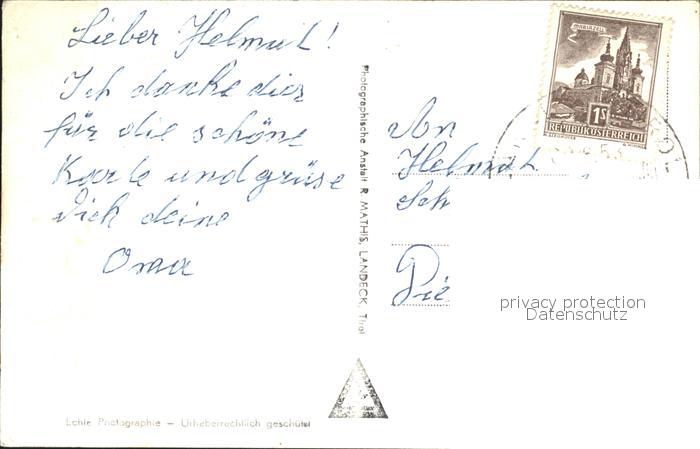 Lieber Helmut!
Ich danke dir
für die schöne
Karte und grüse
Dich deine
Oma
Photographische Anstalt R. MATHIS, LANDECK, Tirol
Echte Photographie – Urheberrechtlich geschützt
MARIAZELL
1S
REPUBLIK ÖSTERREICH
An
Helmut
Sch
privacy protection
Datenschutz